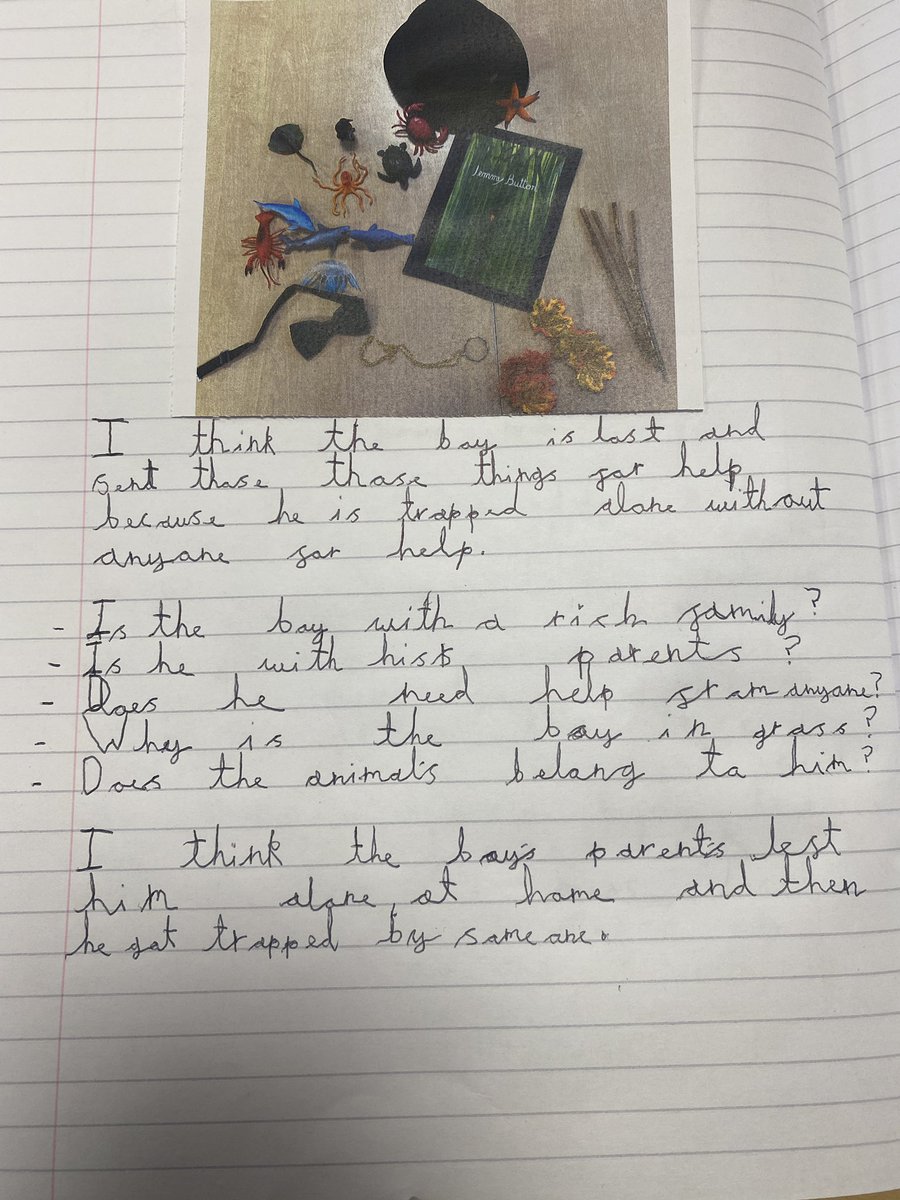 Jemmy Button
I think the boy is lost and
sent those those things for help
because he is trapped alone without
anyone for help.
- Is the boy with a rich family?
- Is he with his parents?
- Does he need help from anyone?
- Why is the boy in grass?
- Does the animal's belong to him?
I think the boy's parent's left
him alone at home and then
he got trapped by someone.